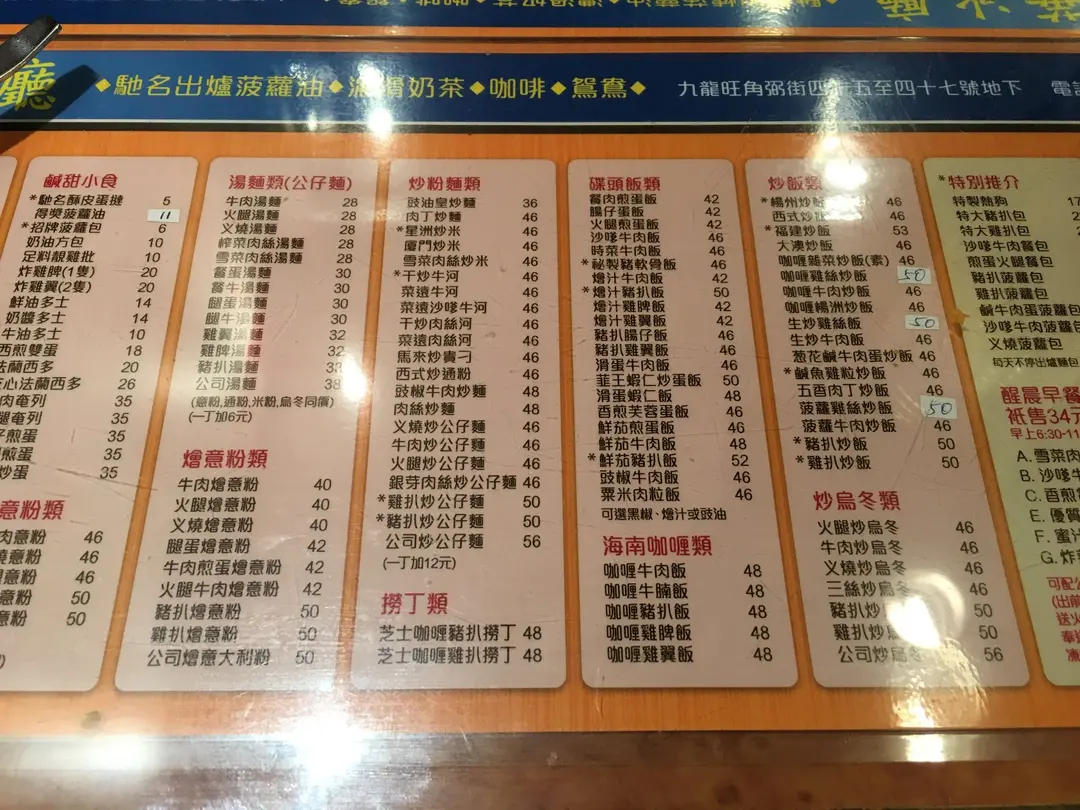 廳
◆馳名出爐菠蘿油◆ 滑奶茶◆咖啡◆鴛鴦◆
九龍旺角弼街四十五至四十七號地下
鹹甜小食
*馳名酥皮蛋撻 5
得獎菠蘿油 11
*招牌菠蘿包 6
奶油方包 10
足料靚雞批 10
炸雞脾(1隻) 20
炸雞翼(2隻) 20
鮮油多士 14
奶醬多士 14
牛油多士 10
西煎雙蛋 18
法蘭西多 20
心法蘭西多 26
肉奄列 35
腿奄列 35
煎蛋 35
煎蛋 35
炒蛋 35
意粉類
肉意粉 46
燒意粉 46
意粉 46
意粉 50
意粉 50
湯麵類(公仔麵)
牛肉湯麵 28
火腿湯麵 28
义燒湯麵 28
榨菜肉絲湯麵 28
雪菜肉絲湯麵 28
餐蛋湯麵 30
餐牛湯麵 30
腿蛋湯麵 30
腿牛湯麵 30
雞翼湯麵 32
雞脾湯麵 32
豬扒湯麵 38
公司湯麵 38
(意粉,通粉,米粉,烏冬同價)
(一丁加6元)
燴意粉類
牛肉燴意粉 40
火腿燴意粉 40
义燒燴意粉 40
腿蛋燴意粉 42
牛肉煎蛋燴意粉 42
火腿牛肉燴意粉 42
豬扒燴意粉 50
雞扒燴意粉 50
公司燴意大利粉 50
炒粉麵類
豉油皇炒麵 36
肉丁炒麵 46
*星洲炒米 46
廈門炒米 46
雪菜肉絲炒米 46
*干炒牛河 46
菜遠牛河 46
菜遠沙嗲牛河 46
干炒肉絲河 46
菜遠肉絲河 46
馬來炒貴刁 46
西式炒通粉 46
豉椒牛肉炒麵 48
肉絲炒麵 48
义燒炒公仔麵 46
牛肉炒公仔麵 46
火腿炒公仔麵 46
銀芽肉絲炒公仔麵 46
*雞扒炒公仔麵 50
*豬扒炒公仔麵 50
公司炒公仔麵 56
(一丁加12元)
撈丁類
芝士咖喱豬扒撈丁 48
芝士咖喱雞扒撈丁 48
碟頭飯類
餐肉煎蛋飯 42
腸仔蛋飯 42
火腿煎蛋飯 42
沙嗲牛肉飯 46
時菜牛肉飯 46
*秘製豬軟骨飯 46
燴汁牛肉飯 42
*燴汁豬扒飯 50
燴汁雞脾飯 42
燴汁雞翼飯 42
豬扒腸仔飯 46
豬扒雞翼飯 46
滑蛋牛肉飯 46
韮王蝦仁炒蛋飯 50
滑蛋蝦仁飯 48
香煎芙蓉蛋飯 48
鮮茄煎蛋飯 46
鮮茄牛肉飯 48
*鮮茄豬扒飯 52
豉椒牛肉飯 46
粟米肉粒飯 46
可選黑椒、燴汁或豉油
海南咖喱類
咖喱牛肉飯 48
咖喱牛腩飯 48
咖喱豬扒飯 48
咖喱雞脾飯 48
咖喱雞翼飯 48
炒飯類
*楊州炒飯 46
西式炒飯 46
*福建炒飯 53
大澳炒飯 46
咖喱雜菜炒飯(素) 46
咖喱雞絲炒飯 50
咖喱牛肉炒飯 46
咖喱楊洲炒飯 46
生炒雞絲飯 50
生炒牛肉飯 46
葱花鹹牛肉蛋炒飯 46
*鹹魚雞粒炒飯 46
五香肉丁炒飯 46
菠蘿雞絲炒飯 50
菠蘿牛肉炒飯 46
*豬扒炒飯 50
*雞扒炒飯 50
炒烏冬類
火腿炒烏冬 46
牛肉炒烏冬 46
义燒炒烏冬 46
三絲炒烏冬 46
豬扒炒 50
雞扒炒烏 50
公司炒烏冬 56
*特別推介
特製熱狗
特大豬扒包
特大雞扒包
沙嗲牛肉餐包
煎蛋火腿餐包
豬扒菠蘿包
雞扒菠蘿包
鹹牛肉蛋菠蘿包
沙嗲牛肉菠蘿
义燒菠蘿包
每天不停出爐麵包
醒晨早餐
祇售34元
早上6:30-11
A.雪菜肉
B.沙嗲牛
C.香煎
E.優質
F.蜜汁
G.炸
可配
(出前
送火